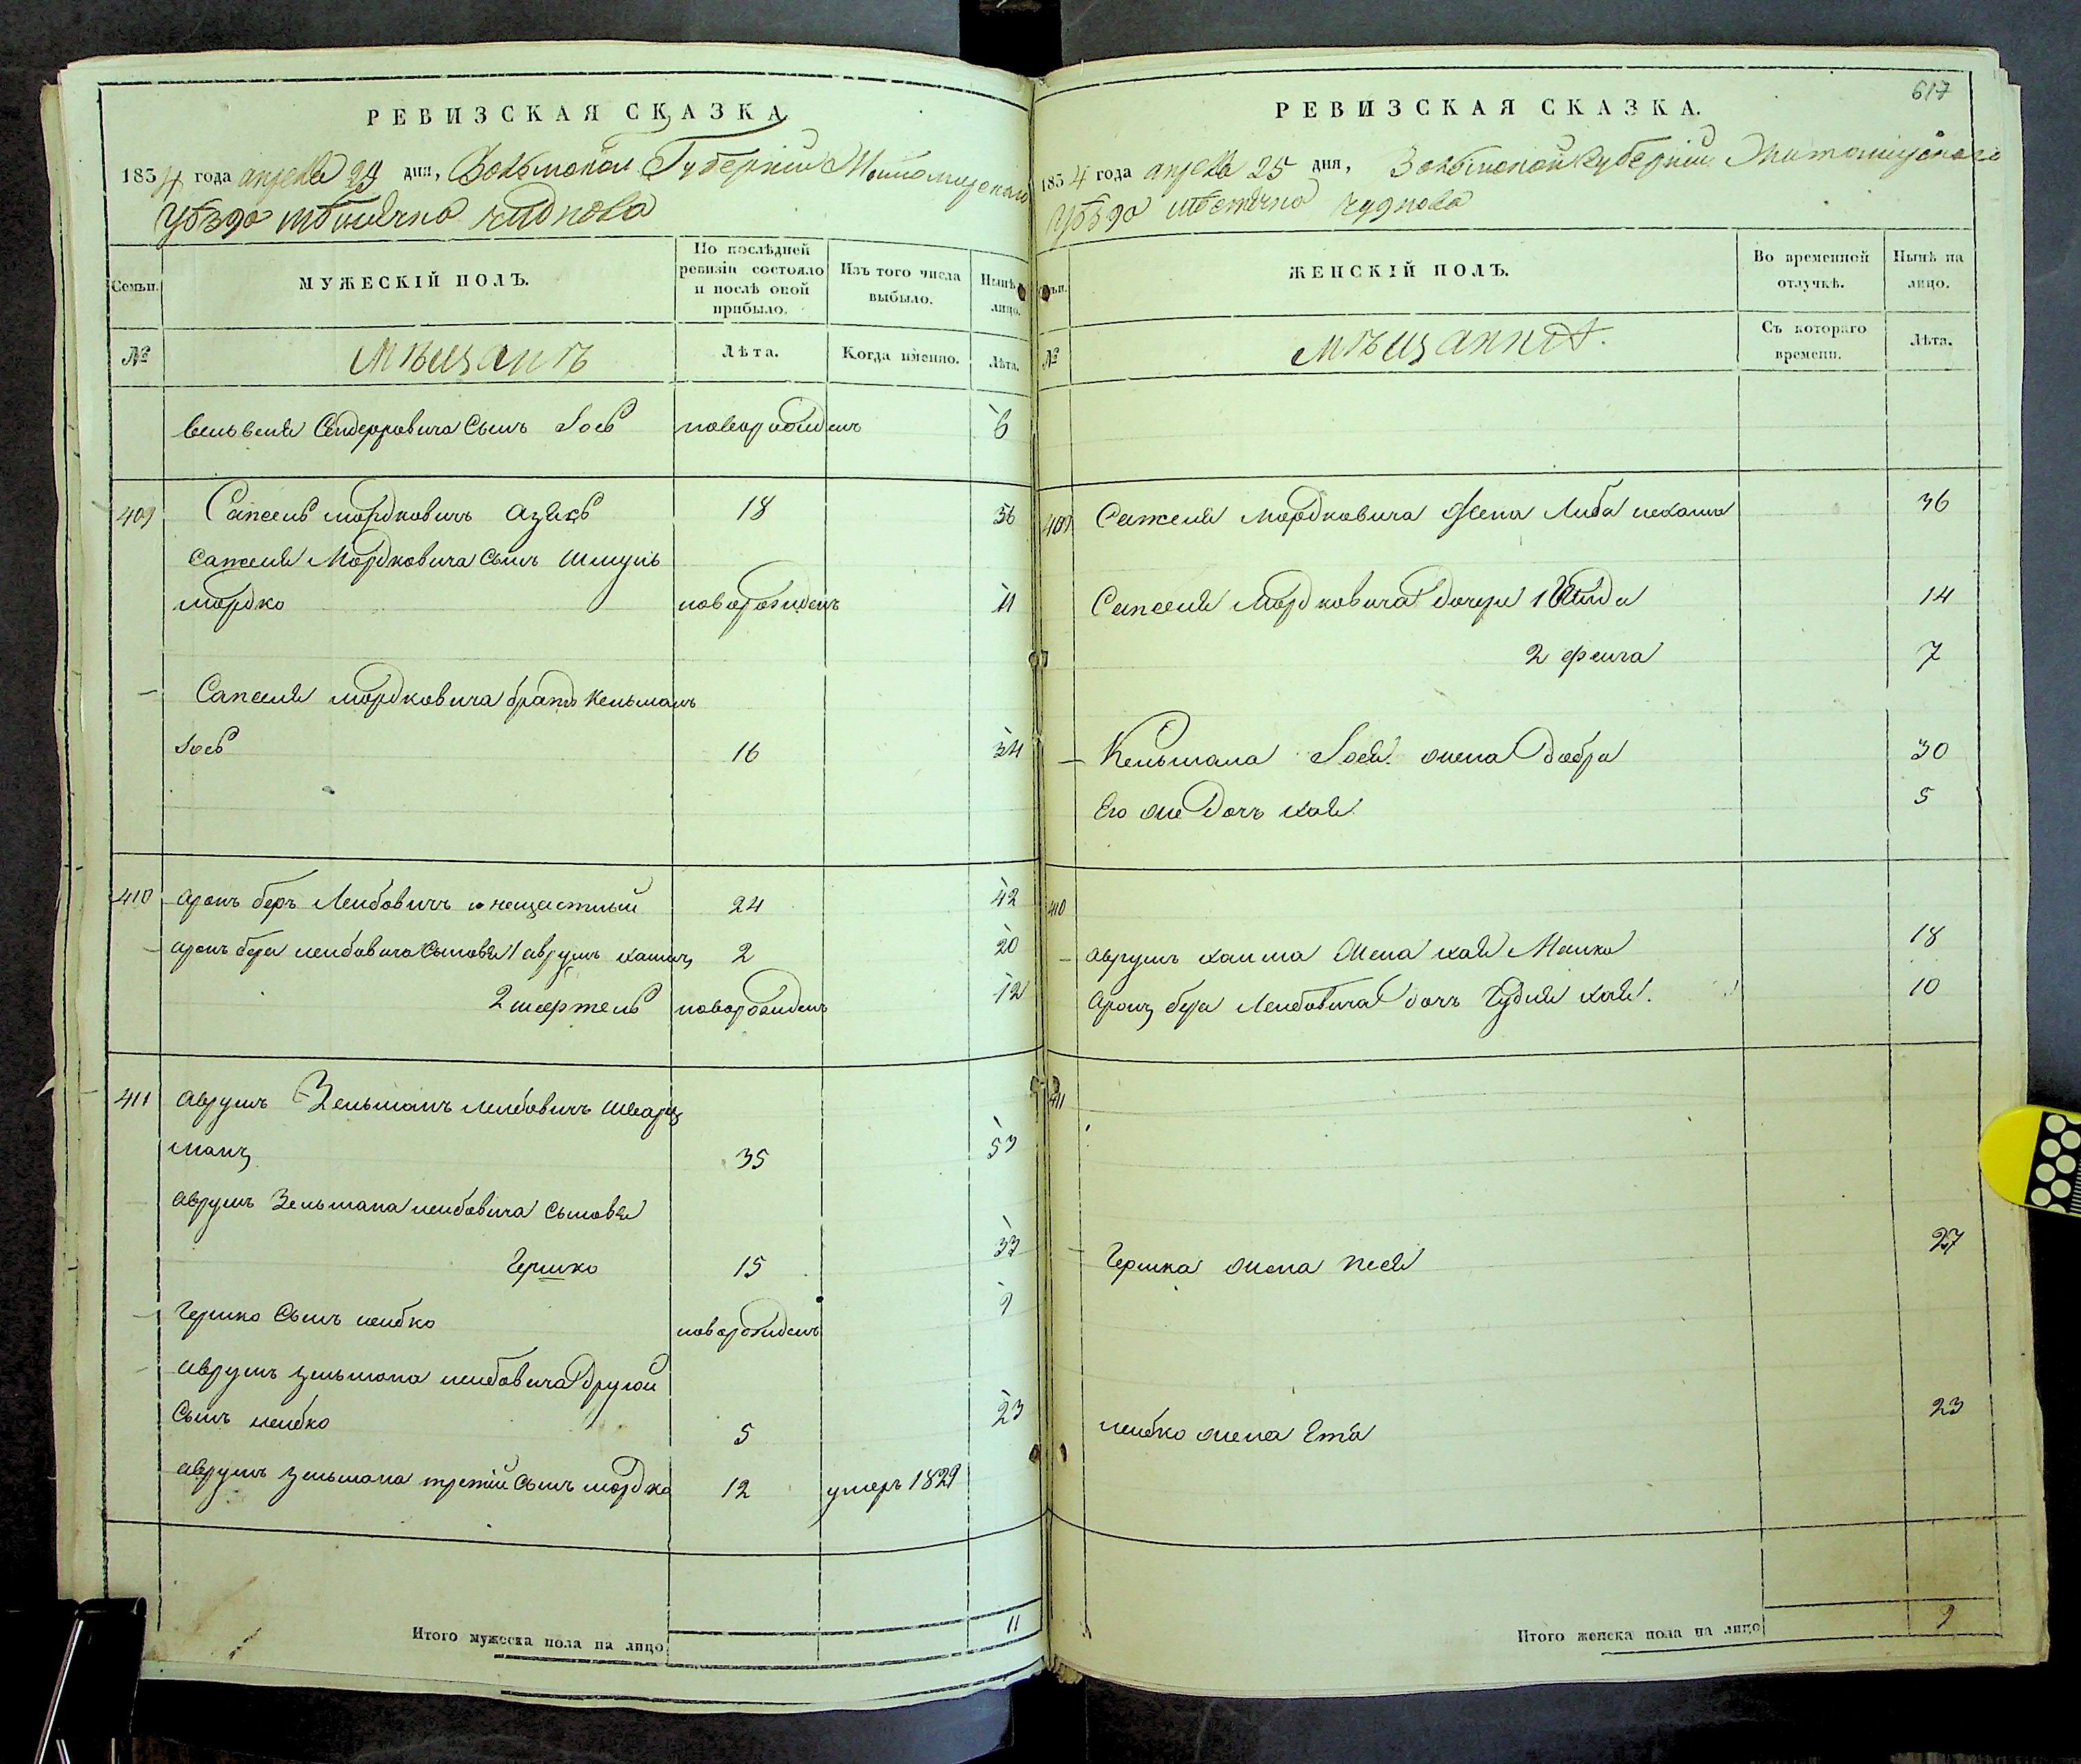 РЕВИЗСКАЯ СКАЗКА
1834 года апреля 25 дня, Волынской Губернии Житомирскаго
Уѣзда мѣстечка Чуднова
Семьи.
МУЖЕСКІЙ ПОЛЪ.
По послѣдней ревизіи состояло и послѣ оной прибыло.
Изъ того числа выбыло.
Нынѣ на лицо.
№
мѣщанъ
Лѣта.
Когда именно.
Лѣта.
Сендеровича сынъ Іось новорожденъ 6
409 мордковичъ 18 36
Мордковича сынъ Шмуль
мордко новорожденъ 11
мордковича братъ Кельманъ
Іось 16 34
410 аронъ беръ Лейбовичъ нещастный 24 42
аронъ бера лейбовича сыновья 1 аврумъ 2 20
2 новорожденъ 12
411 аврумъ Зельманъ лейбовичъ Шварц
манъ 35 53
аврумъ Зельмана лейбовича сыновья
Гершко 15 33
Гершко сынъ лейбко новорожденъ 9
аврумъ зельмана лейбовича другой
сынъ лейбко 5 23
аврумъ зельмана третій сынъ мордко 12 умеръ 1829
Итого мужеска пола на лицо 11
617
РЕВИЗСКАЯ СКАЗКА.
1834 года апреля 25 дня, Волынской губерніи Житомирскаго
Уѣзда мѣстечка чуднова
Семьи.
ЖЕНСКІЙ ПОЛЪ.
Во временной отлучкѣ.
Нынѣ на лицо.
№
мѣщанкѣ.
Съ котораго времени.
Лѣта.
409 мордковича жена Либа 36
Мордковича дочери 1 14
2 фейга 7
Кельмана Іося жена добра 30
Его же дочь хая 5
410
аврумъ жена хая 18
аронъ бера Лейбовича дочь хая. 10
411
Гершка жена песя 27
лейбко жена Ета 23
Итого женска пола на лицо 9